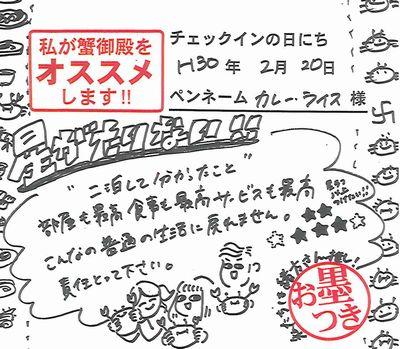 私が蟹御殿を
オススメ
します!!
チェックインの日にち
H30 年 2月 20日
ペンネーム カレーライス 様
足がたりない!!
"二泊して分かったこと"
部屋も最高 食事も最高 サービスも最高
こんなの普通の生活に戻れません。
責任とって下さい。
お墨
つき